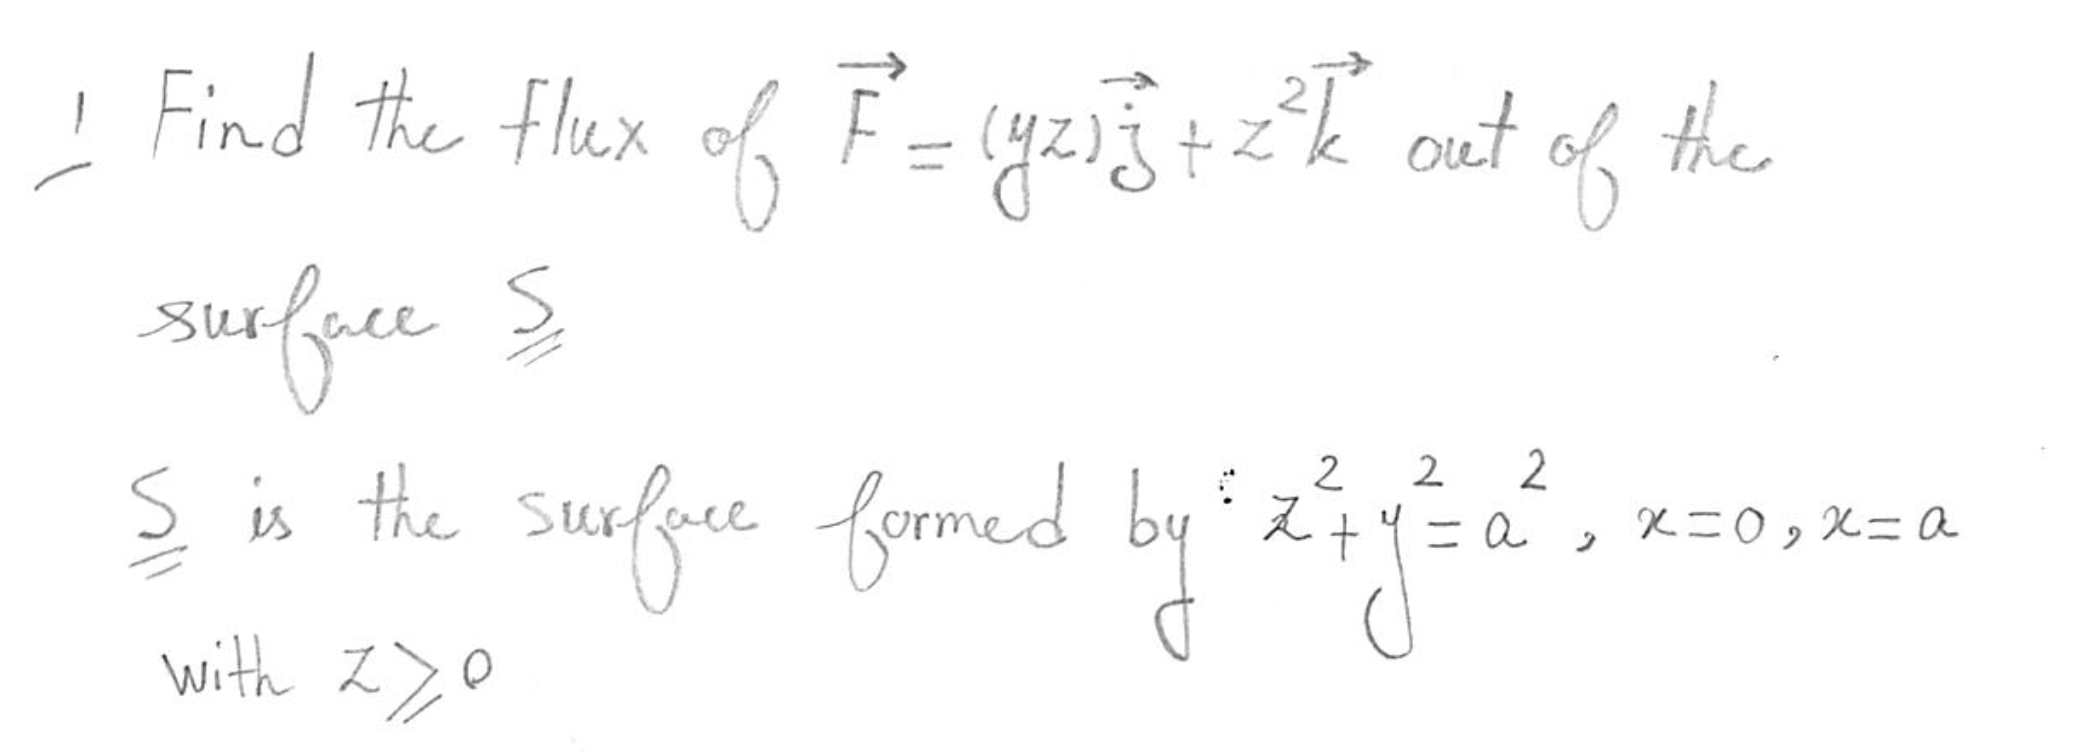 1 Find the flux of F⃗ = (yz) j⃗ + z²k⃗ out of the
surface S
S is the surface formed by : z² + y² = a², x=0, x=a
with z ⩾ 0